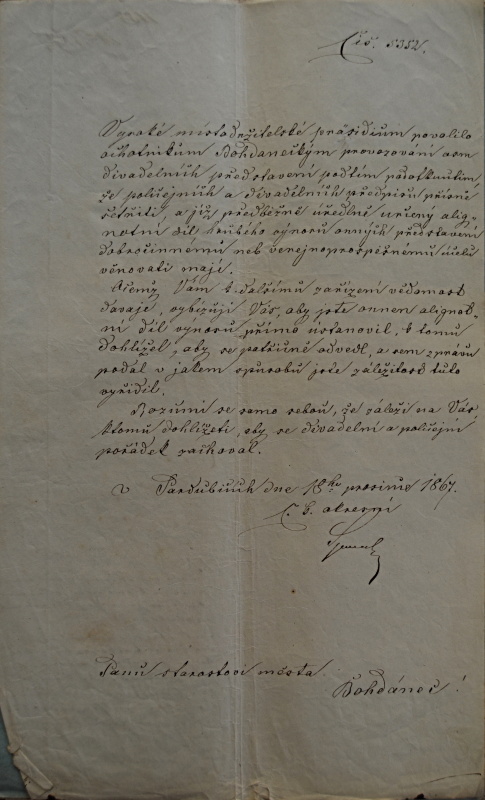 Čís. 5352.
Vysoké místodržitelské präsidium povolilo
ochotnikům Bohdaneckým provozování osm
divadelních představení podtím
se policejních a divadelních předpisů přísně
šetřiti, a již předběžně úředně určený aliq-
notní díl hrubého výnosu onných představení
dobročinnému neb veřejnoprospěšnému účelu
věnovati mají.
Očemž Vám k dalšímu zařízení vědomost
davaje, vybízuji Vás, aby jste onnen aliquot-
ní díl výnosu přímo ustanovil, k tomu
dohlížel, aby se patřičně odvedl, a sem zprávu
podal v jakem spůsobu jste záležitost tuto
vyřídil.
Rozumí se samo sebou, že záleží na Vás,
ktomu dohlížeti, aby se divadelní a policejní
pořádek zachoval.
v Pardubicích dne 18ho prosince 1867.
C. k. okresní
Panu starostovi města
Bohdáneč!